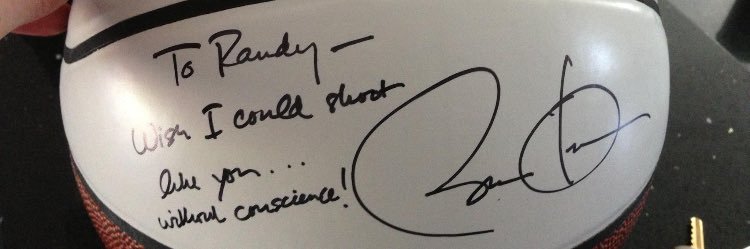 To Randy—
Wish I could shoot
like you...
without conscience!